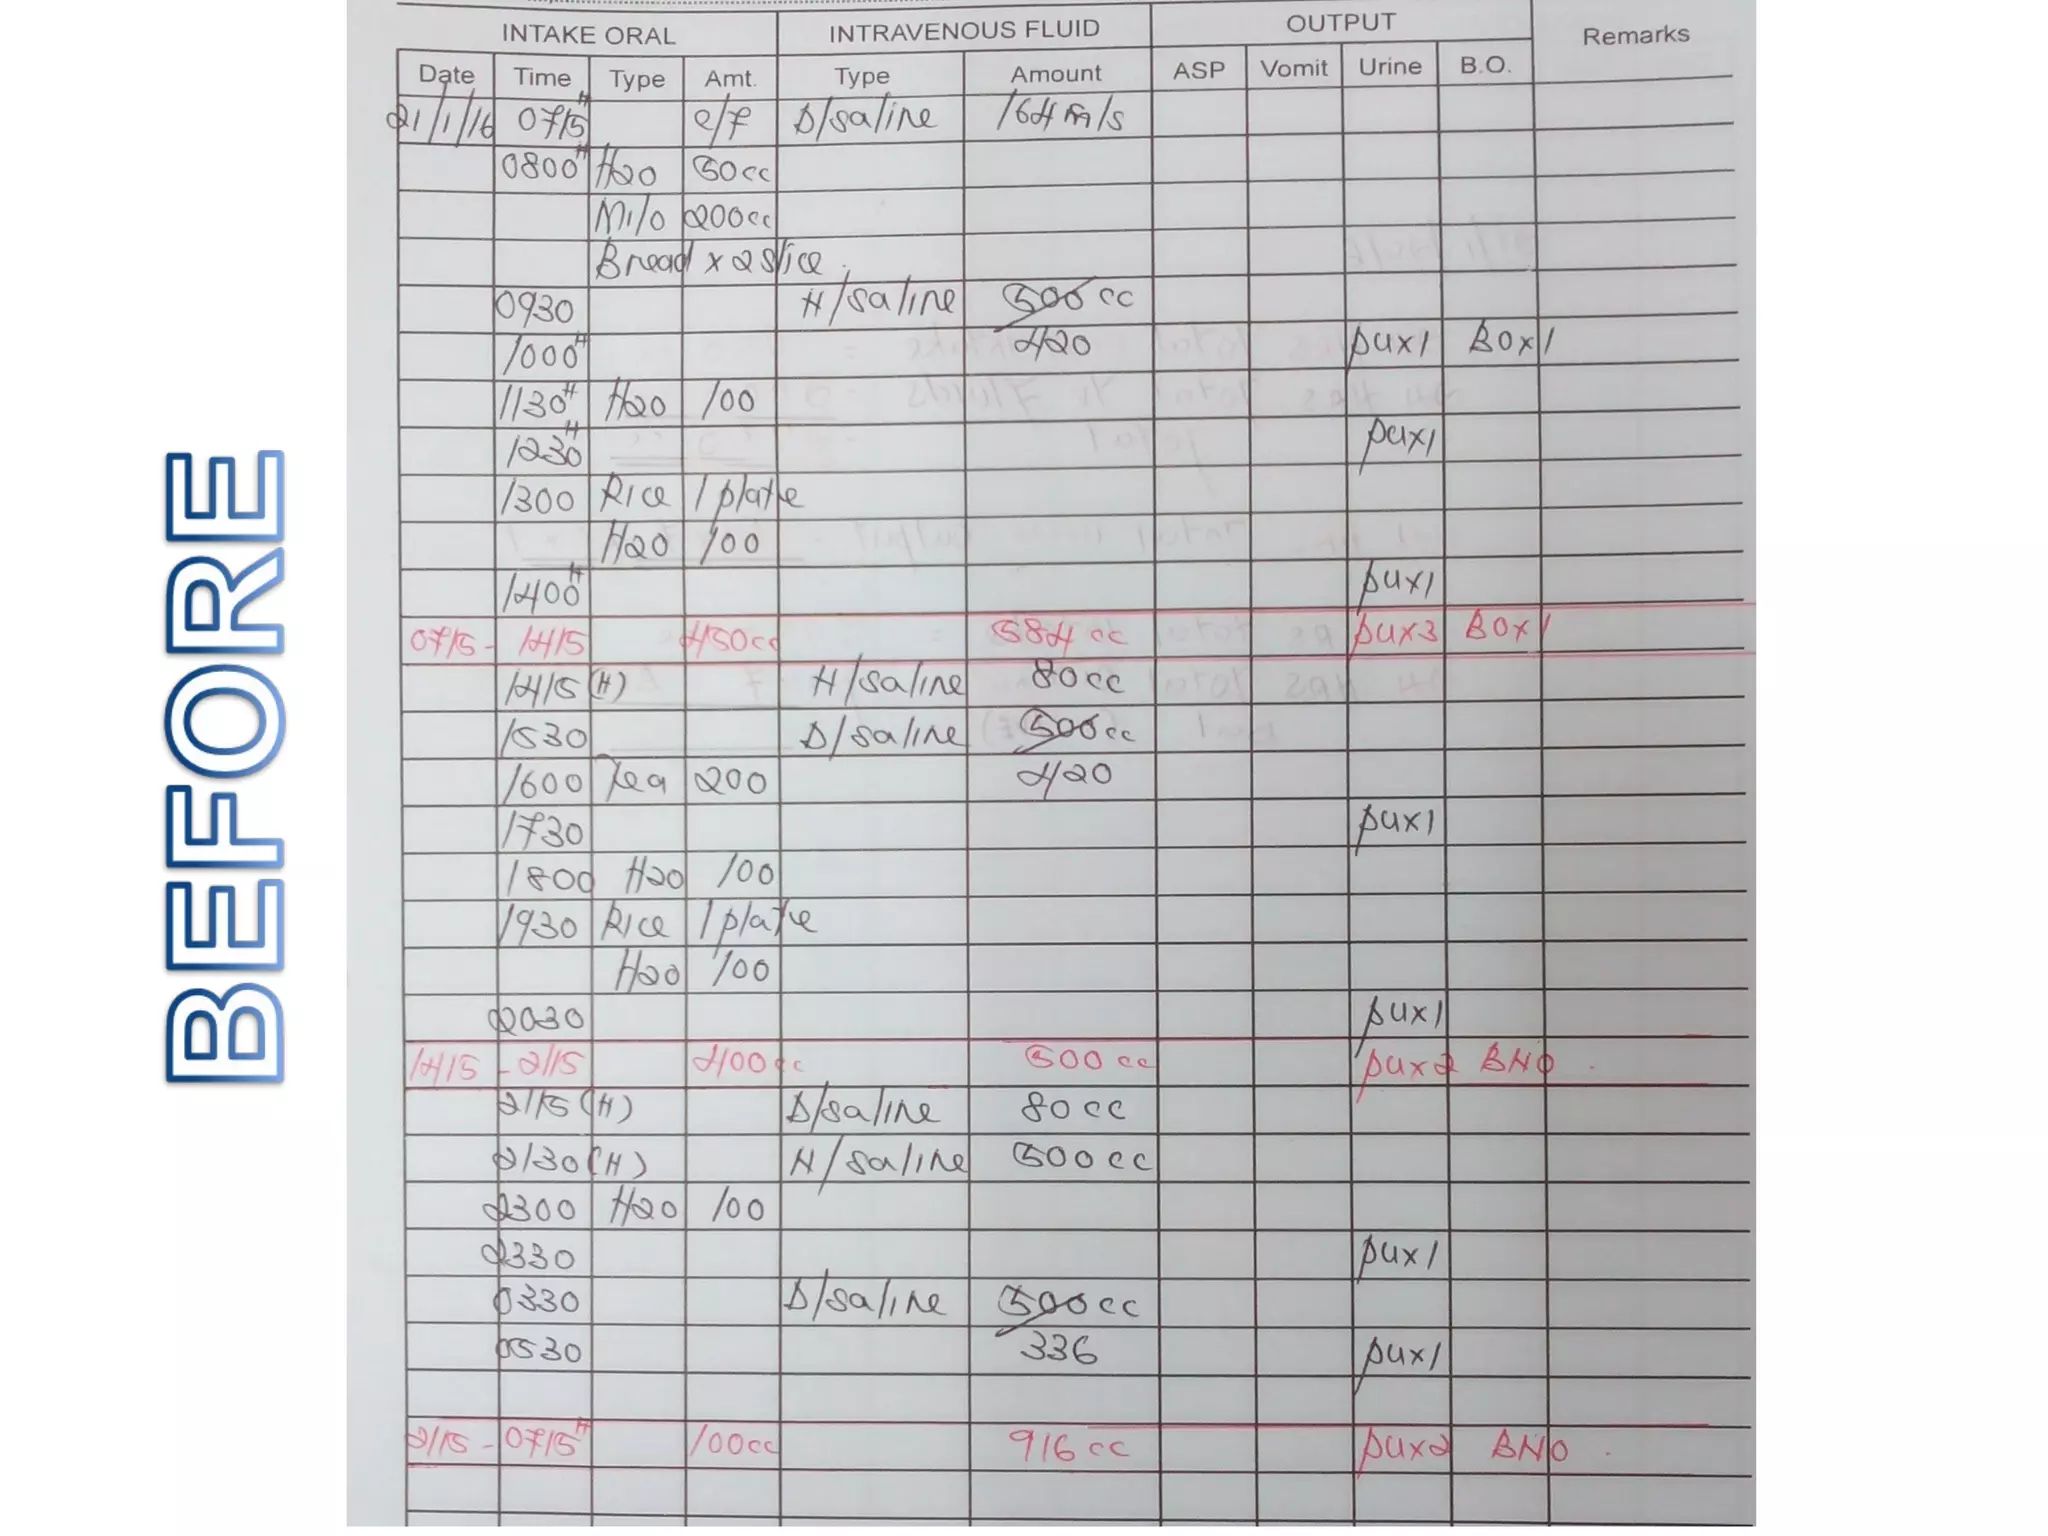 BEFORE
INTAKE ORAL INTRAVENOUS FLUID OUTPUT Remarks
Date Time Type Amt. Type Amount ASP Vomit Urine B.O.
21/1/16 0715H c/f D/saline 164 mls
0800H H2O 50cc
Milo 200cc
Bread x 2 slice.
0930 H/saline 500cc
1000H 420 pux1 BOx1
1130H H2O 100
1230H pux1
1300 Rice 1 plate
H2O 100
1400H pux1
0715 - 1415 450cc 584cc pux3 BOx1
1415(H) H/saline 80cc
1530 D/saline 500cc
1600 Tea 200 420
1730 pux1
1800 H2O 100
1930 Rice 1 plate
H2O 100
2030 pux1
1415 - 2115 400cc 500cc pux2 BNO.
2115(H) D/saline 80cc
2130(H) H/saline 500cc
2300 H2O 100
2330 pux1
0330 D/saline 500cc
0530 336 pux1
2115 - 0715H 100cc 916cc pux2 BNO.